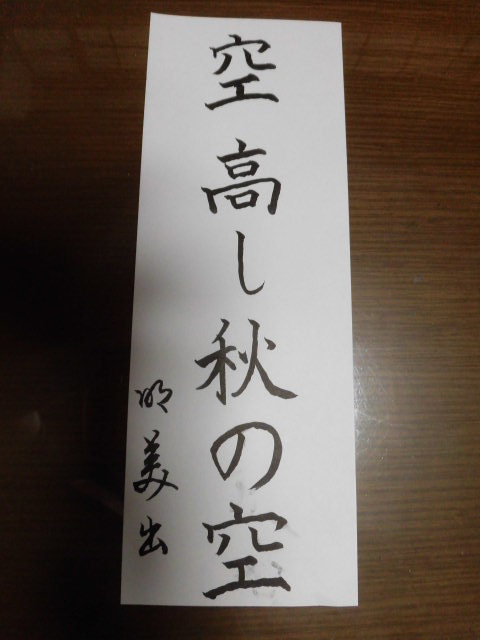 空高し秋の空
明美出